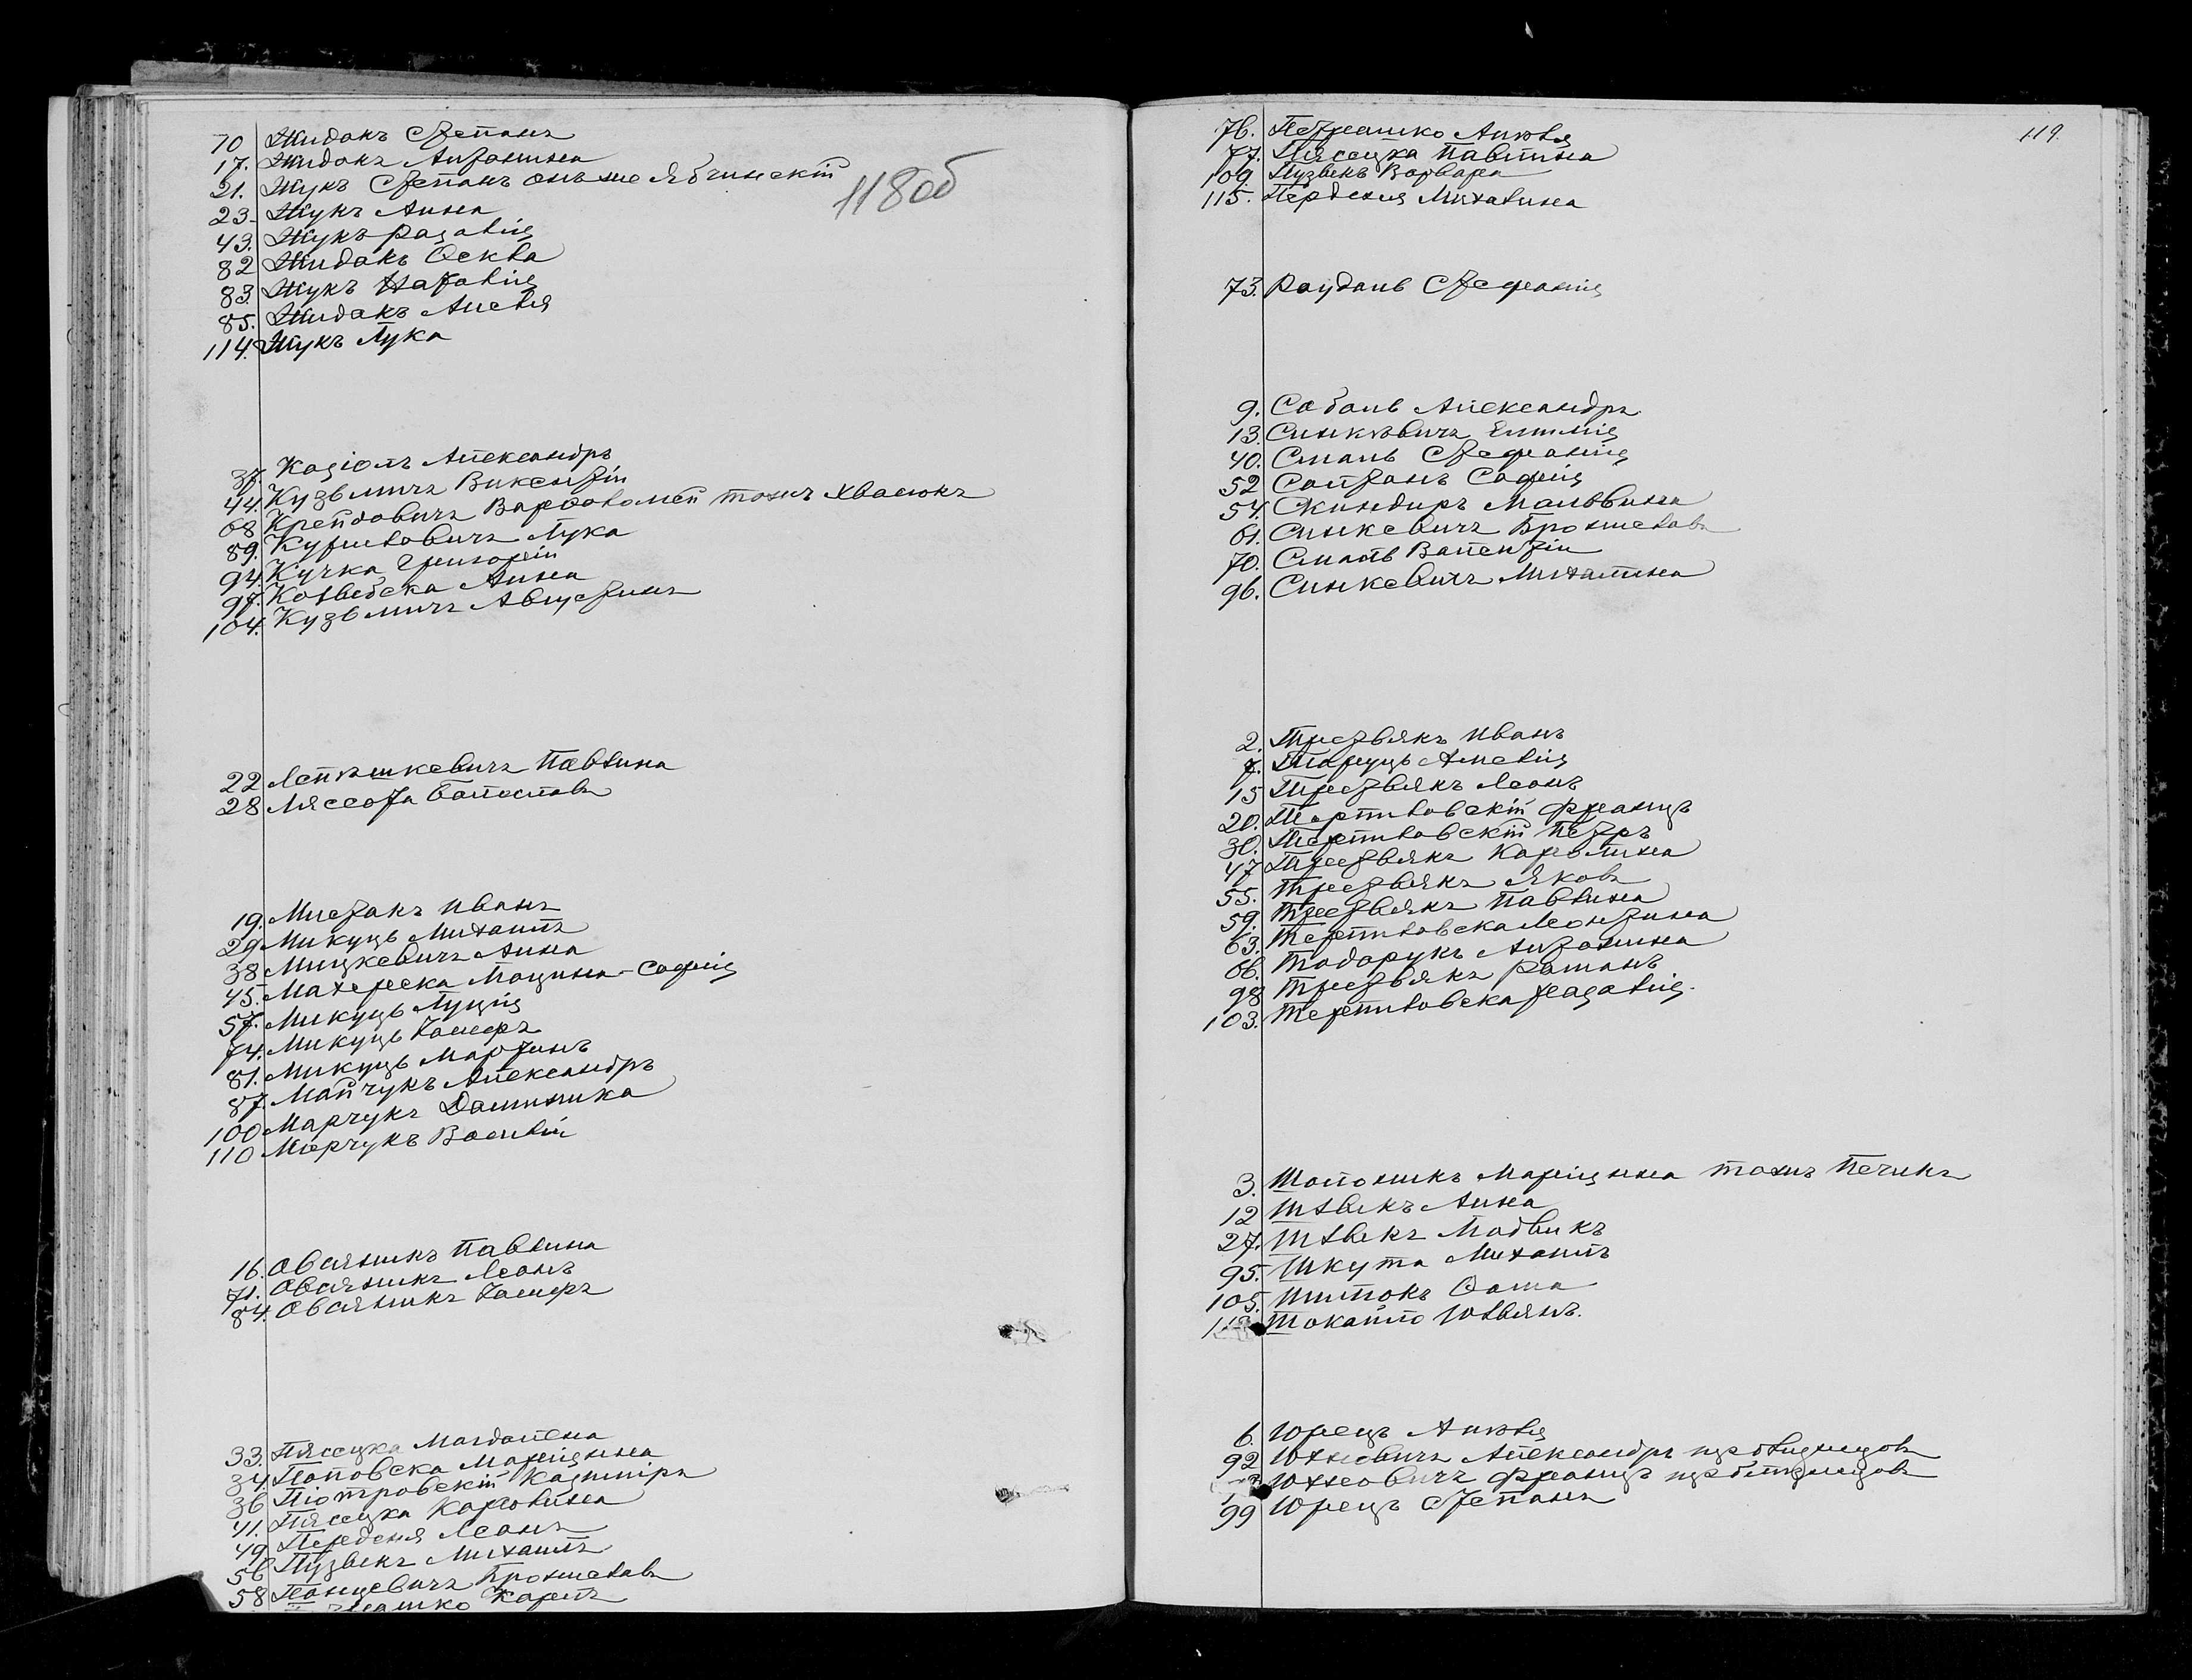 118об
70 Жидакъ Степанъ
17. Жидакъ Антонина
21. Жукъ Степанъ онъ же Ябчинскій
23. Жукъ Анна
43. Жукъ Розалія
82 Жидакъ Феква
83. Жукъ Наталія
85. Жидакъ Анеля
114. Жукъ Лука
37. Казіолъ Александръ
44. Кузьмичъ Викентій
68 Крейдовичъ Варфоломей тожъ Хвасюкъ
89. Куриловичъ Лука
94. Кучка Григорій
97. Анна
104. Кузьмичъ Августинъ
22 Лепѣшкевичъ Павлина
28 Лясота Болеславъ
19. Мистакъ Иванъ
29 Микуць Михаилъ
38 Мицкевичъ Анна
45. Махереска Марцина-Софія
57. Микуць Луція
74. Микуць Іосифъ
81. Микуць Мартинъ
87. Майчукъ Александръ
100 Марчукъ Доминика
110 Марчукъ Василій
16. Овсяникъ Павлина
71. Овсяникъ Леонъ
84. Овсяникъ Іосифъ
33. Пясецка Магдалена
34. Поповска Маріянна
36 Піотровскій Казиміръ
41. Пясецка Каролина
49 Передня Леонъ
56 Пузвекъ Михаилъ
58 Панцевичъ Брониславъ
Карлъ
119.
76. Петрашко Анеля
77. Пясецка Павлина
109. Пузвекъ Варвара
115. Передня Михалина
73. Роуданъ Стефанія
9. Собань Александръ
13. Синкѣвичъ Емилія
40. Смаль Стефанія
52 Солтанъ Софія
54. Скиндиръ Мальвина
61. Синкевичъ Брониславъ
70. Смаль Валентій
96. Синкевичъ Михалина
2. Третьякъ Иванъ
7. Таруць Анелія
15 Третьякъ Леонъ
20. Терпиловскій Францъ
30. Терпиловскій Петръ
47 Третьякъ Каролина
55. Третьякъ Яковъ
59. Третьякъ Павлина
63. Терпиловска Леонтина
66. Тодорукъ Антонина
98 Третьякъ Романъ
103. Терпиловска Розалія.
3. Шапошникъ Маріянна тожъ Печикъ
12 Шлыкъ Анна
27. Шлыкъ Людвикъ
95. Шкута Михаилъ
105. Шитокъ Фома
Шокайло Юльянъ.
6. Юрецъ Анеля
92 Юхновичъ Александръ изъ близнецовъ
Юхновичъ Францъ изъ близнецовъ
99 Юрецъ Степанъ